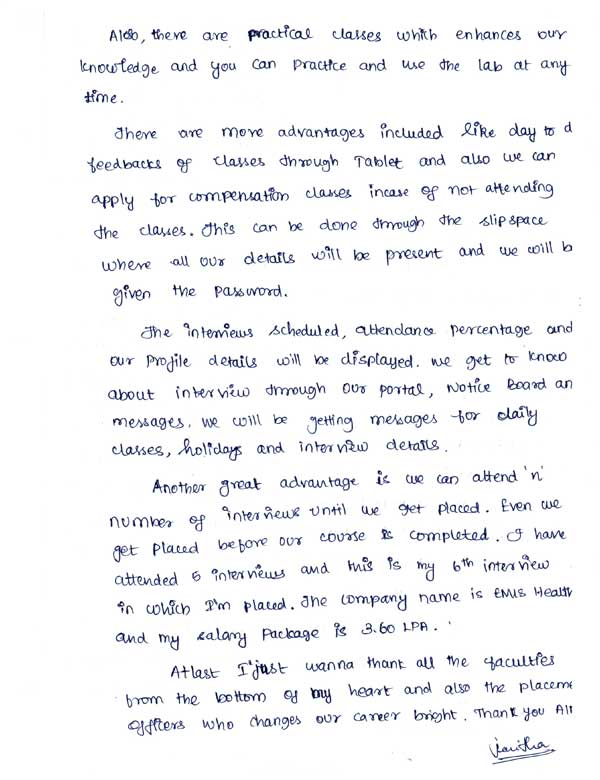 Also, there are practical classes which enhances our
knowledge and you can practice and use the lab at any
time.
There are more advantages included like day to d
feedbacks of classes through Tablet and also we can
apply for compensation classes incase of not attending
the classes. This can be done through the slipspace
where all our details will be present and we will b
given the password.
The interviews scheduled, attendance percentage and
our profile details will be displayed. We get to know
about interview through our portal, Notice Board an
messages. We will be getting messages for daily
classes, holidays and interview details.
Another great advantage is we can attend 'n'
number of interviews until we get placed. Even we
get placed before our course is completed. I have
attended 5 interviews and this is my 6th interview
in which I'm placed. The company name is EMIS Health
and my salary package is 3.60 LPA.
Atlast I just wanna thank all the faculties
from the bottom of my heart and also the placeme
officers who changes our career bright. Thank you All